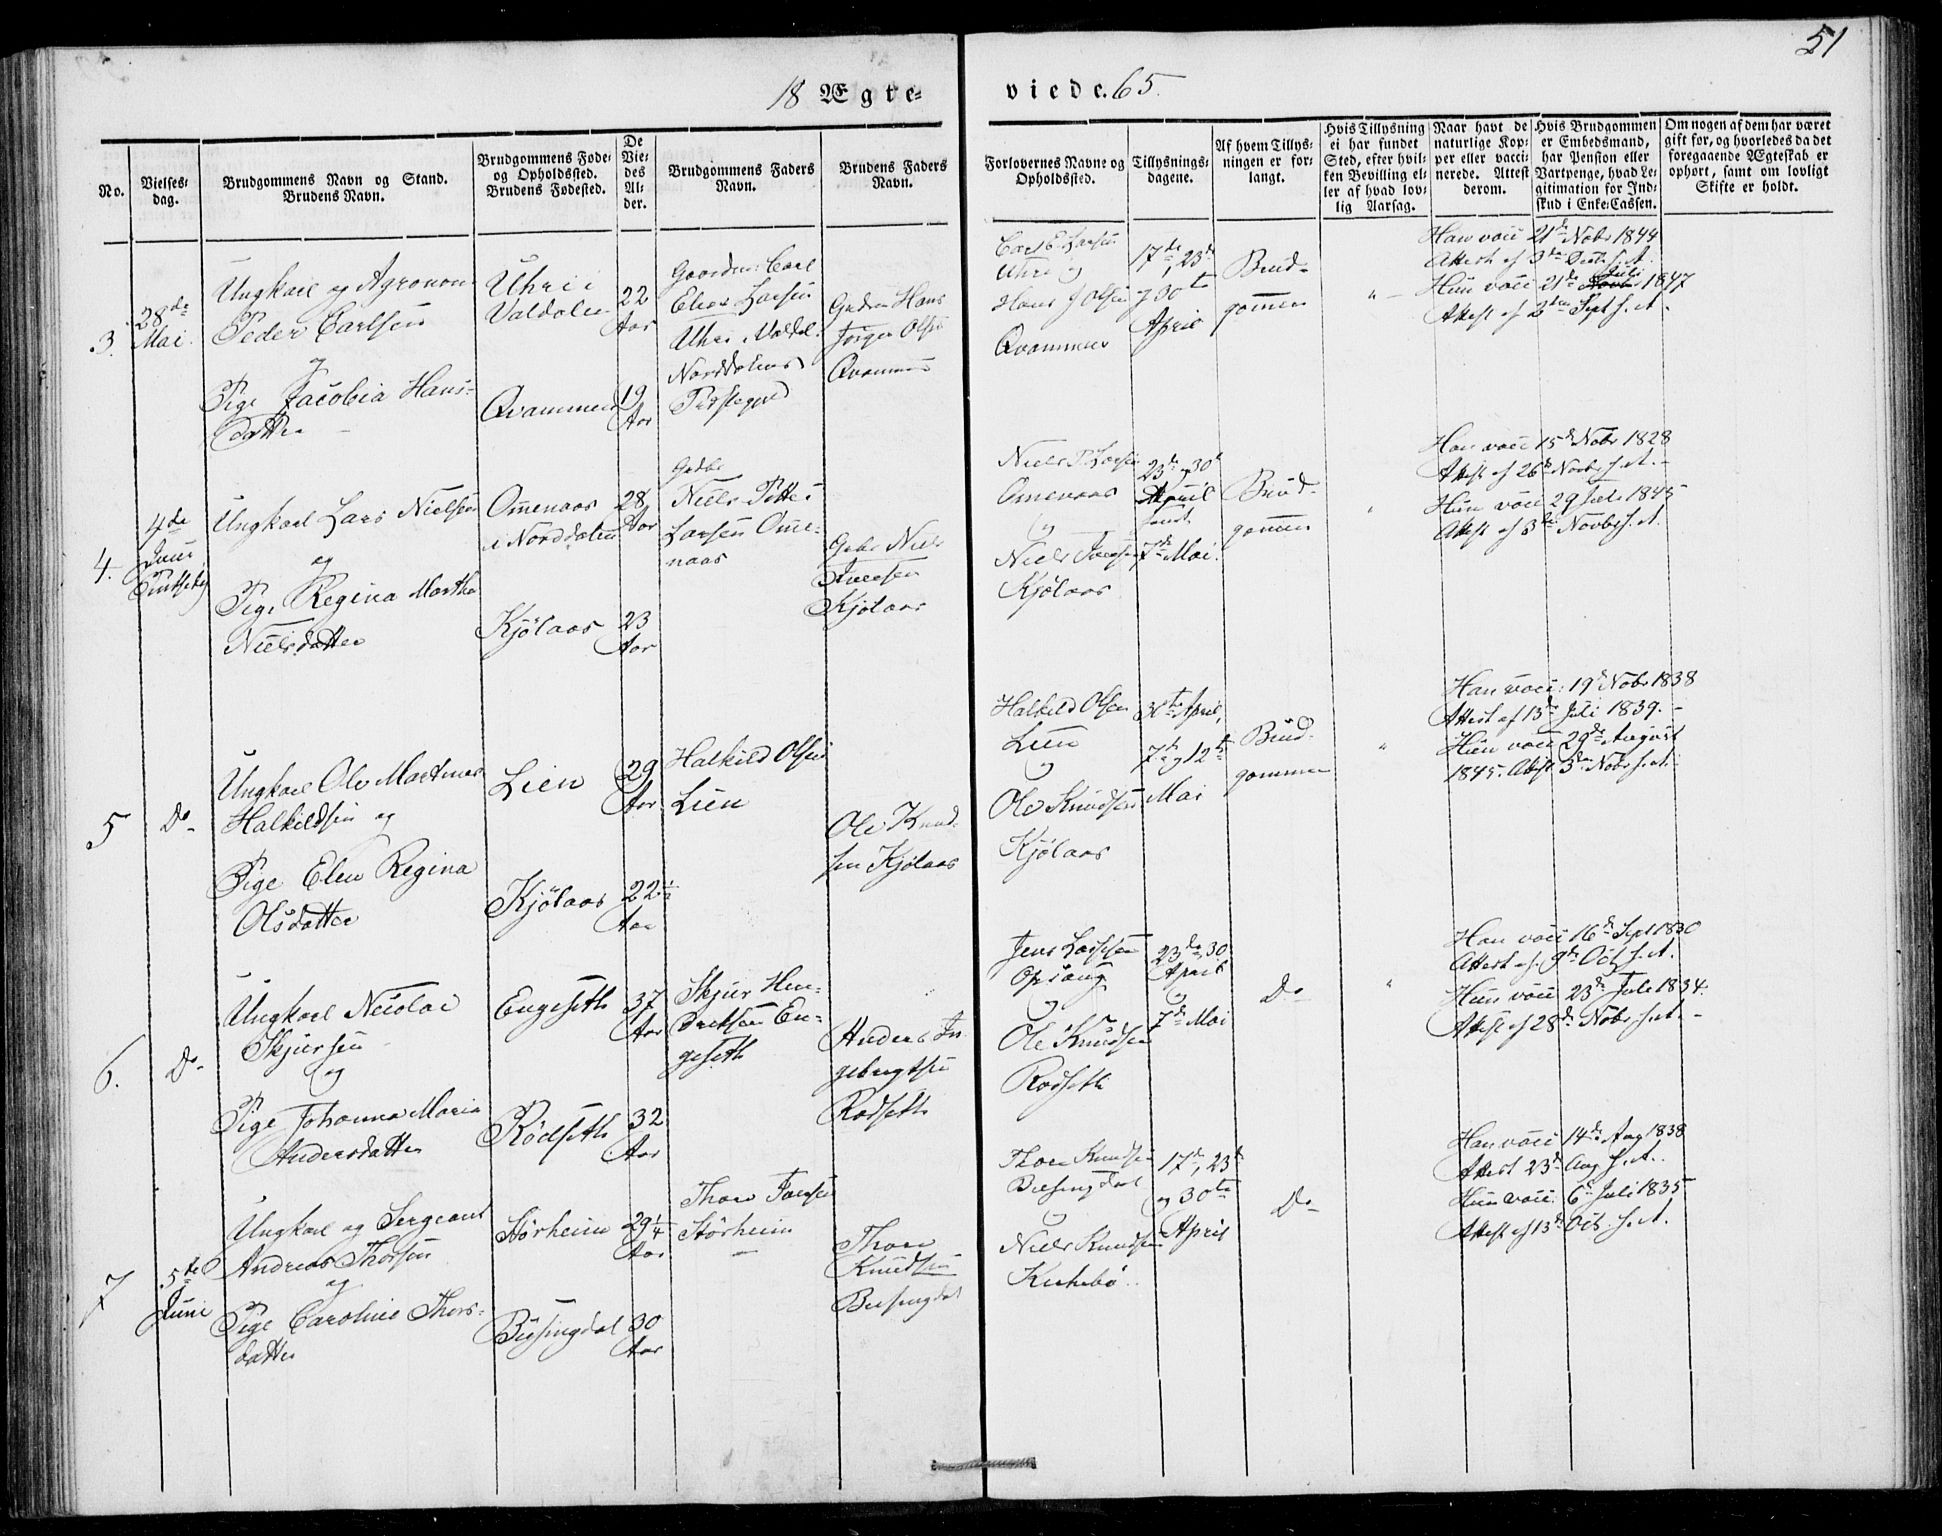 51
18 Ægte-
viede. 65.
No.
Vielses-
dag.
Brudgommens Navn og Stand.
Brudens Navn.
Brudgommens Føde-
og Opholdssted.
Brudens Fødested.
De
Vie-
des
Al-
der.
Brudgommens Faders
Navn.
Brudens Faders
Navn.
Forlovernes Navne og
Opholdssted.
Tillysnings-
dagene.
Af hvem Tillys-
ningen er for-
langt.
Hvis Tillysning
ei har fundet
Sted, efter hvil-
ken Bevilling el-
ler af hvad lov-
lig Aarsag.
Naar havt de
naturlige Kop-
per eller vacci-
nerede. Attest
derom.
Hvis Brudgommen
er Embedsmand,
har Pension eller
Vartpenge, hvad Le-
gitimation for Ind-
skud i Enke-Cassen.
Om nogen af dem har været
gift før, og hvorledes da det
foregaaende Ægteskab er
ophørt, samt om lovligt
Skifte er holdt.
3.
28de
Mai.
Ungkarl og Agronom
Peder Carlsen
og
Pige Jacobia Hans-
datter
Uhri i
Valdalen
Qvammen
22
Aar
19
Aar
Gaardm: Carl
Larsen
Uhri Valdal.
Norddalens
Præstegjeld
Hans
Jørgen Olsen
Qvammen
Carl E. Larsen
Uhri og
Hans J. Olsen
Qvammen
17de, 23de
og 30te
April
Brud-
gommen
"
Han vacc 21de Nobr 1844
Attest af 3de Decbr s. A.
Hun vacc 21de Juli 1847
Attest af 2den Sept s. A.
4.
4de
Juni
Ungkarl Lars Nielsen
og
Pige Regina Martha
Nielsdatter
Omenaas
i Norddalen
Kjölaas
28
Aar
23
Aar
Niels Petter
Larsen Ome-
naas
Niels
Iversen
Kjölaas
Niels P. Larsen
Omenaas
og
Niels Iversen
Kjölaas
23de og 30te
April
samt
7de Mai.
Brud-
gommen
"
Han vacc 15de Nobr 1828
Attest af 26de Novbr s. A. -
Hun vacc 29 Juli 1845
Attest af 3de Novbr s. A.
5
Do
Ungkarl Ole Martinus
Halkildsen og
Pige Elen Regina
Olsdatter
Lien
Kjölaas
29
Aar
22½
Aar
Halkild Olsen
Lien
Ole Knud-
sen Kjölaas
Halkild Olsen
Lien
og
Ole Knudsen
Kjölaas
30te April,
7de og 12te
Mai
Brud-
gommen
"
Han vacc: 19de Nobr 1838
Attest af 13de Juli 1839. -
Hun vacc 29de August
1845. Attest 3de Nobr s. A.
6.
Do
Ungkarl Nicolai
Skjursen
og
Pige Johanna Maria
Andersdatter
Engeseth
Rödseth
37
Aar
32
Aar
Skjur Hen-
driksen En-
geseth
Anders In-
gebrigtsen
Rödseth
Jens Larssen
Opsang
og
Ole Knudsen
Rödseth
23de, 30
April
og
7de Mai
Do
"
Han vacc 16de Sept 1830
Attest af 9de Oct s. A.
Hun vacc 23de Juli 1834.
Attest af 28de Nobr s. A. -
7
5te
Juni
Ungkarl og Sergeant
Andreas Thorsen
og
Pige Caroline Thors-
datter
Störheim
Bigsingdal
29¼
Aar
30
Aar
Thor Iversen
Störheim
Thor
Knudsen
Thor Knudsen
og
Niels Knudsen
Kirkebö
17de, 23de
og 30te
April
Do
Han vacc 14de Aug 1838
Attest 23de Aug s. A.
Hun vacc 6te Juli 1835
Attest af 13de Oct. s. A.